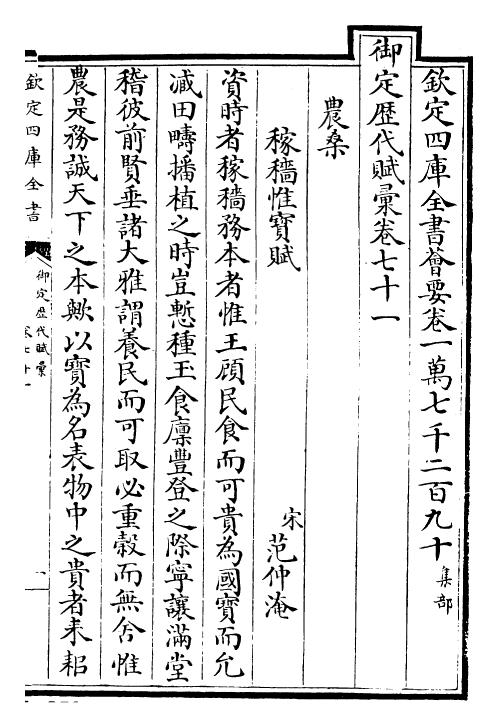 欽定四庫全書薈要卷一萬七千二百九十 集部
御定歷代賦彙卷七十一
農桑
稼穡惟寶賦
宋 范仲淹
資時者稼穡務本者惟王顧民食而可貴為國寶而允
臧田疇播植之時豈慙種玉食廩豐登之際寧讓滿堂
稽彼前賢垂諸大雅謂養民而可取必重穀而無舍惟
農是務誠天下之本歟以寶為名表物中之貴者耒耜
欽定四庫全書
御定歷代賦彙
卷七十一
一